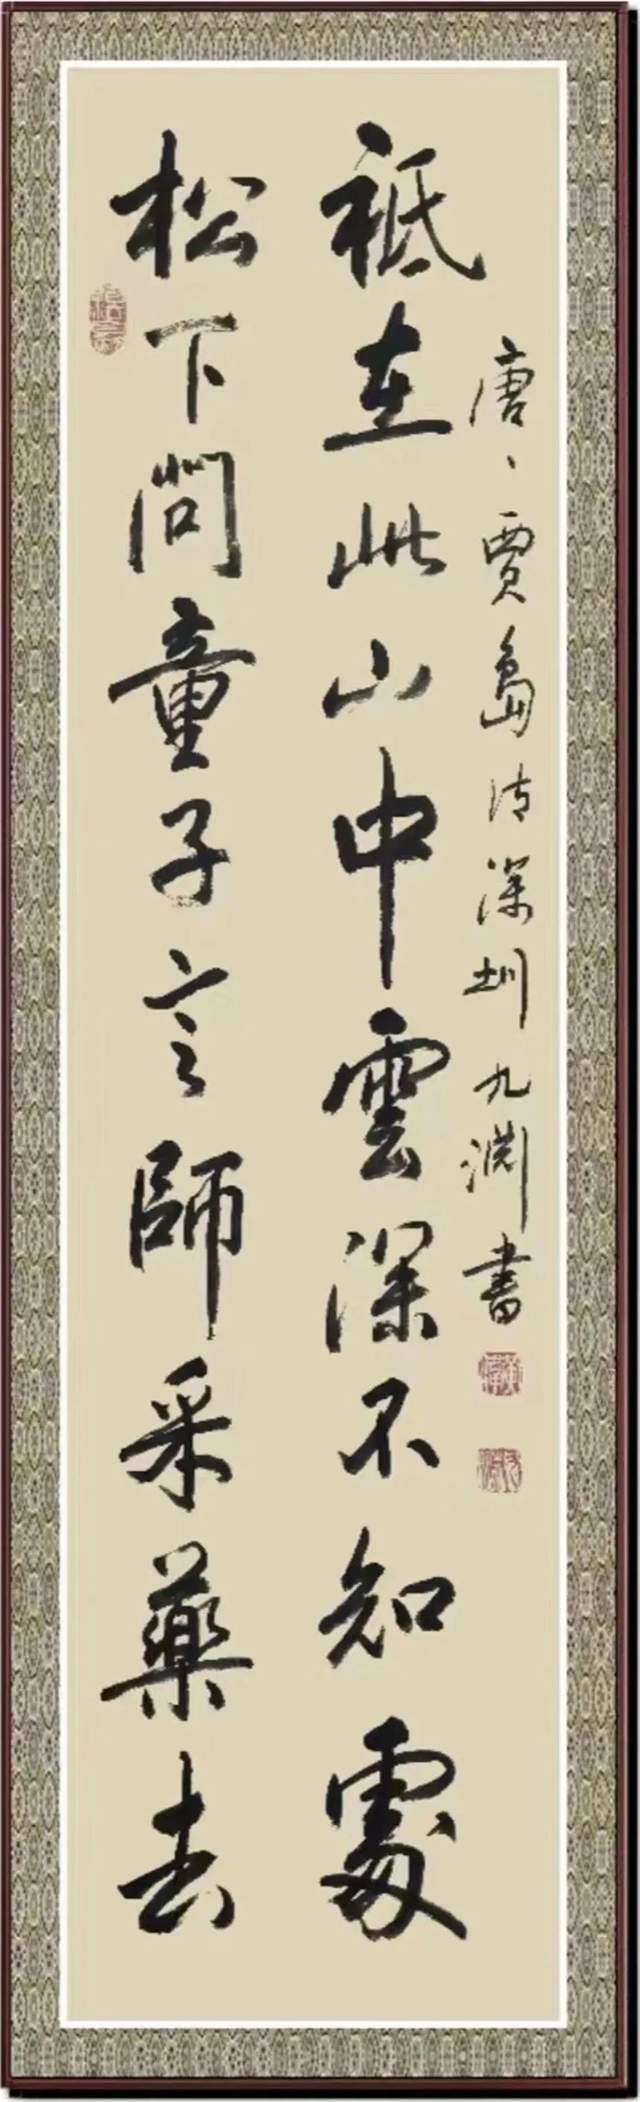 松下問童子言師采藥去
祇在此山中雲深不知處
唐、賈島诗深圳九渊書